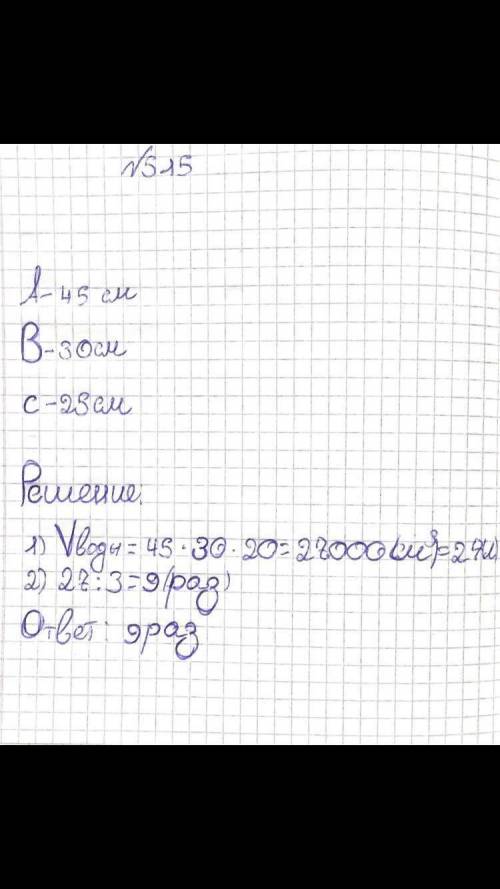 №515
A-45 см
B-30см
С-25см
Решение:
1) Vводы=45·30·20=27000(см³)=27(л)
2) 27:3=9(раз)
Ответ: 9раз